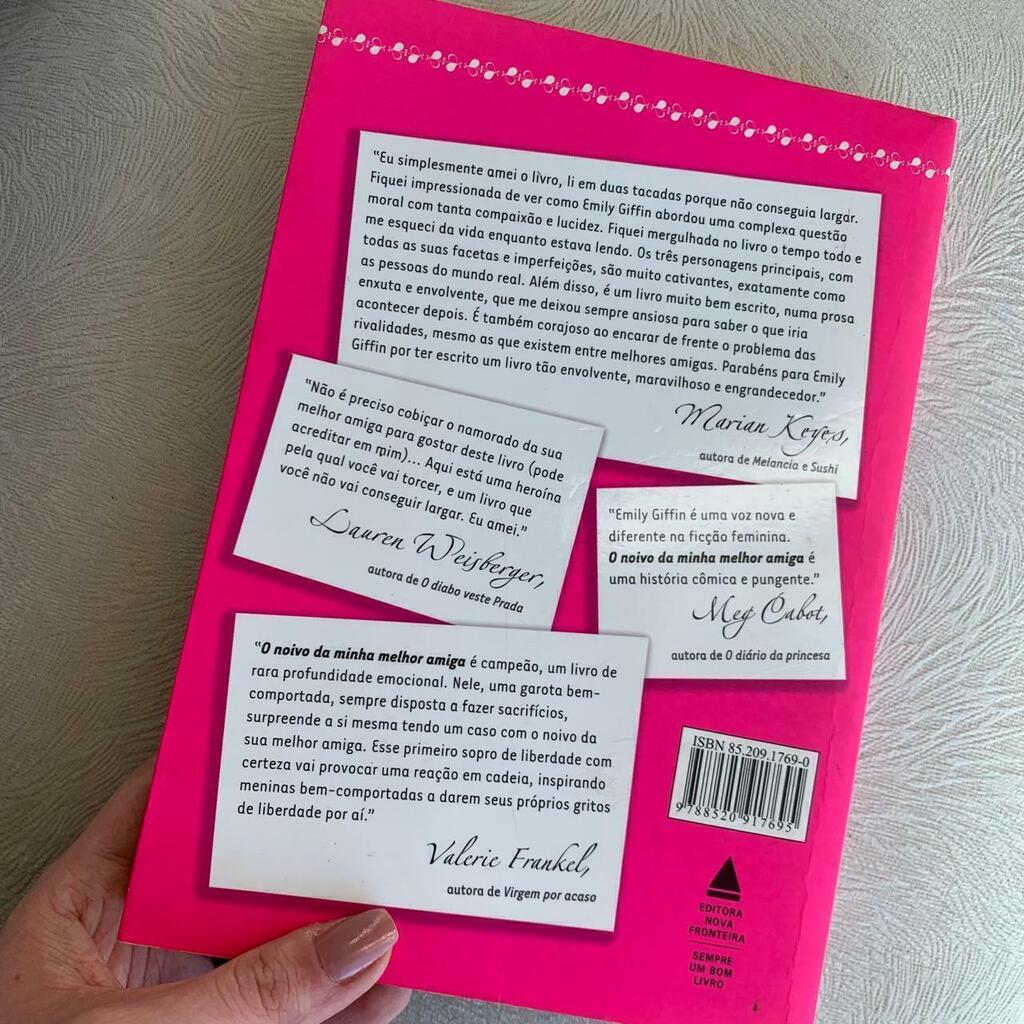 “Eu simplesmente amei o livro, li em duas tacadas porque não conseguia largar.
Fiquei impressionada de ver como Emily Giffin abordou uma complexa questão
moral com tanta compaixão e lucidez. Fiquei mergulhada no livro o tempo todo e
me esqueci da vida enquanto estava lendo. Os três personagens principais, com
todas as suas facetas e imperfeições, são muito cativantes, exatamente como
as pessoas do mundo real. Além disso, é um livro muito bem escrito, numa prosa
enxuta e envolvente, que me deixou sempre ansiosa para saber o que iria
acontecer depois. É também corajoso ao encarar de frente o problema das
rivalidades, mesmo as que existem entre melhores amigas. Parabéns para Emily
Giffin por ter escrito um livro tão envolvente, maravilhoso e engrandecedor.”
Marian Keyes,
autora de Melancia e Sushi
“Não é preciso cobiçar o namorado da sua
melhor amiga para gostar deste livro (pode
acreditar em mim)... Aqui está uma heroína
pela qual você vai torcer, e um livro que
você não vai conseguir largar. Eu amei.”
Lauren Weisberger,
autora de O diabo veste Prada
“Emily Giffin é uma voz nova e
diferente na ficção feminina.
O noivo da minha melhor amiga é
uma história cômica e pungente.”
Meg Cabot,
autora de O diário da princesa
“O noivo da minha melhor amiga é campeão, um livro de
rara profundidade emocional. Nele, uma garota bem-
comportada, sempre disposta a fazer sacrifícios,
surpreende a si mesma tendo um caso com o noivo da
sua melhor amiga. Esse primeiro sopro de liberdade com
certeza vai provocar uma reação em cadeia, inspirando
meninas bem-comportadas a darem seus próprios gritos
de liberdade por aí.”
Valerie Frankel,
autora de Virgem por acaso
ISBN 85.209.1769-0
9 788520 917695
EDITORA
NOVA
FRONTEIRA
SEMPRE
UM BOM
LIVRO